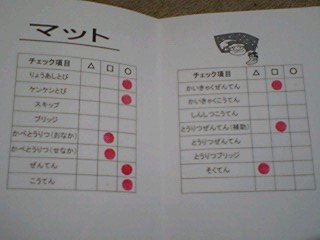 マット
チェック項目 △ □ ○
りょうあしとび
ケンケンとび
スキップ
ブリッジ
かべとうりつ(おなか)
かべとうりつ(せなか)
ぜんてん
こうてん
チェック項目 △ □ ○
かいきゃくぜんてん
かいきゃくこうてん
しんしつこうてん
とうりつぜんてん(補助)
とうりつぜんてん
とうりつブリッジ
そくてん